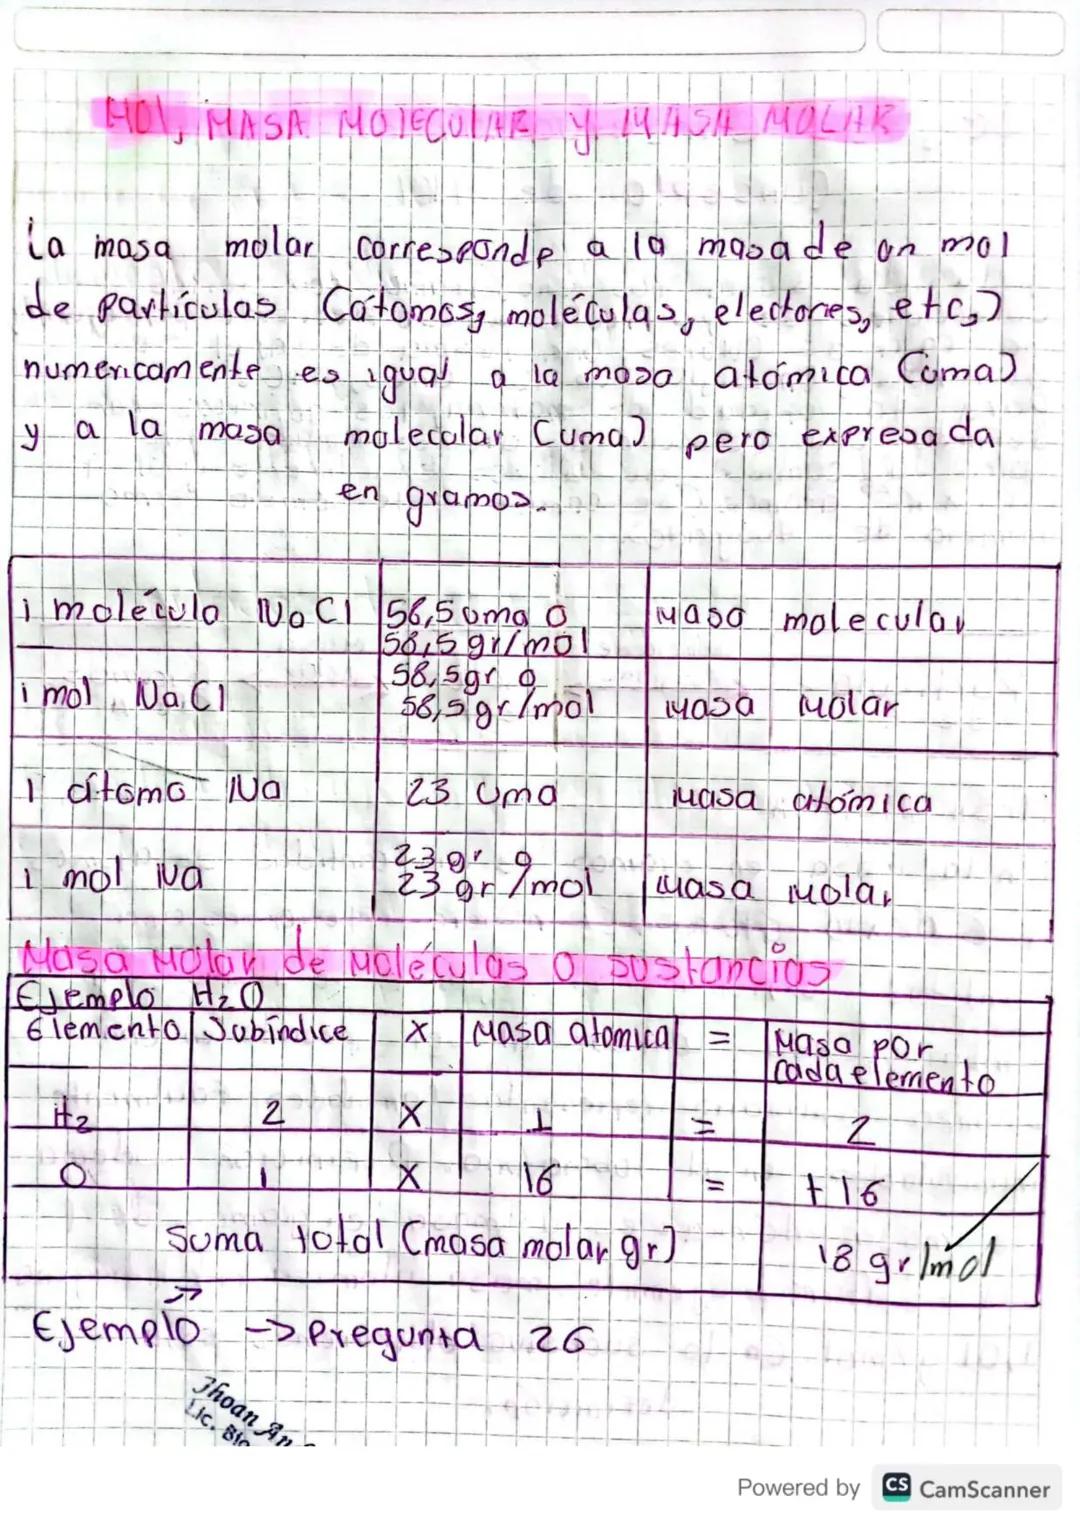 MOl, MASA MOlECUlAR y MASA MOLAR
La masa molar corresponde a la masa de un mol
de partículas (átomos, moléculas, electores, etc,)
numericamente es igual a la masa atómica (uma)
y a la masa molecular (uma) pero expresada
en gramos.
1 molécula NaCl 56,5 uma o 58,5 gr/mol Masa molecular
1 mol NaCl 58,5gr o 58,5 gr/mol Masa Molar
1 átomo Na 23 uma Masa atómica
1 mol Na 23 gr o 23 gr/mol Masa Molar
Masa Molar de Moléculas o sustancias
Ejemplo H2O
Elemento Subíndice X Masa atomica = Masa por cada elemento
H2 2 X 1 = 2
O 1 X 16 = +16
Suma total (masa molar gr) 18 gr/mol
Ejemplo -> Pregunta 26
Jhoan An
Lic. Bio
Powered by CS CamScanner